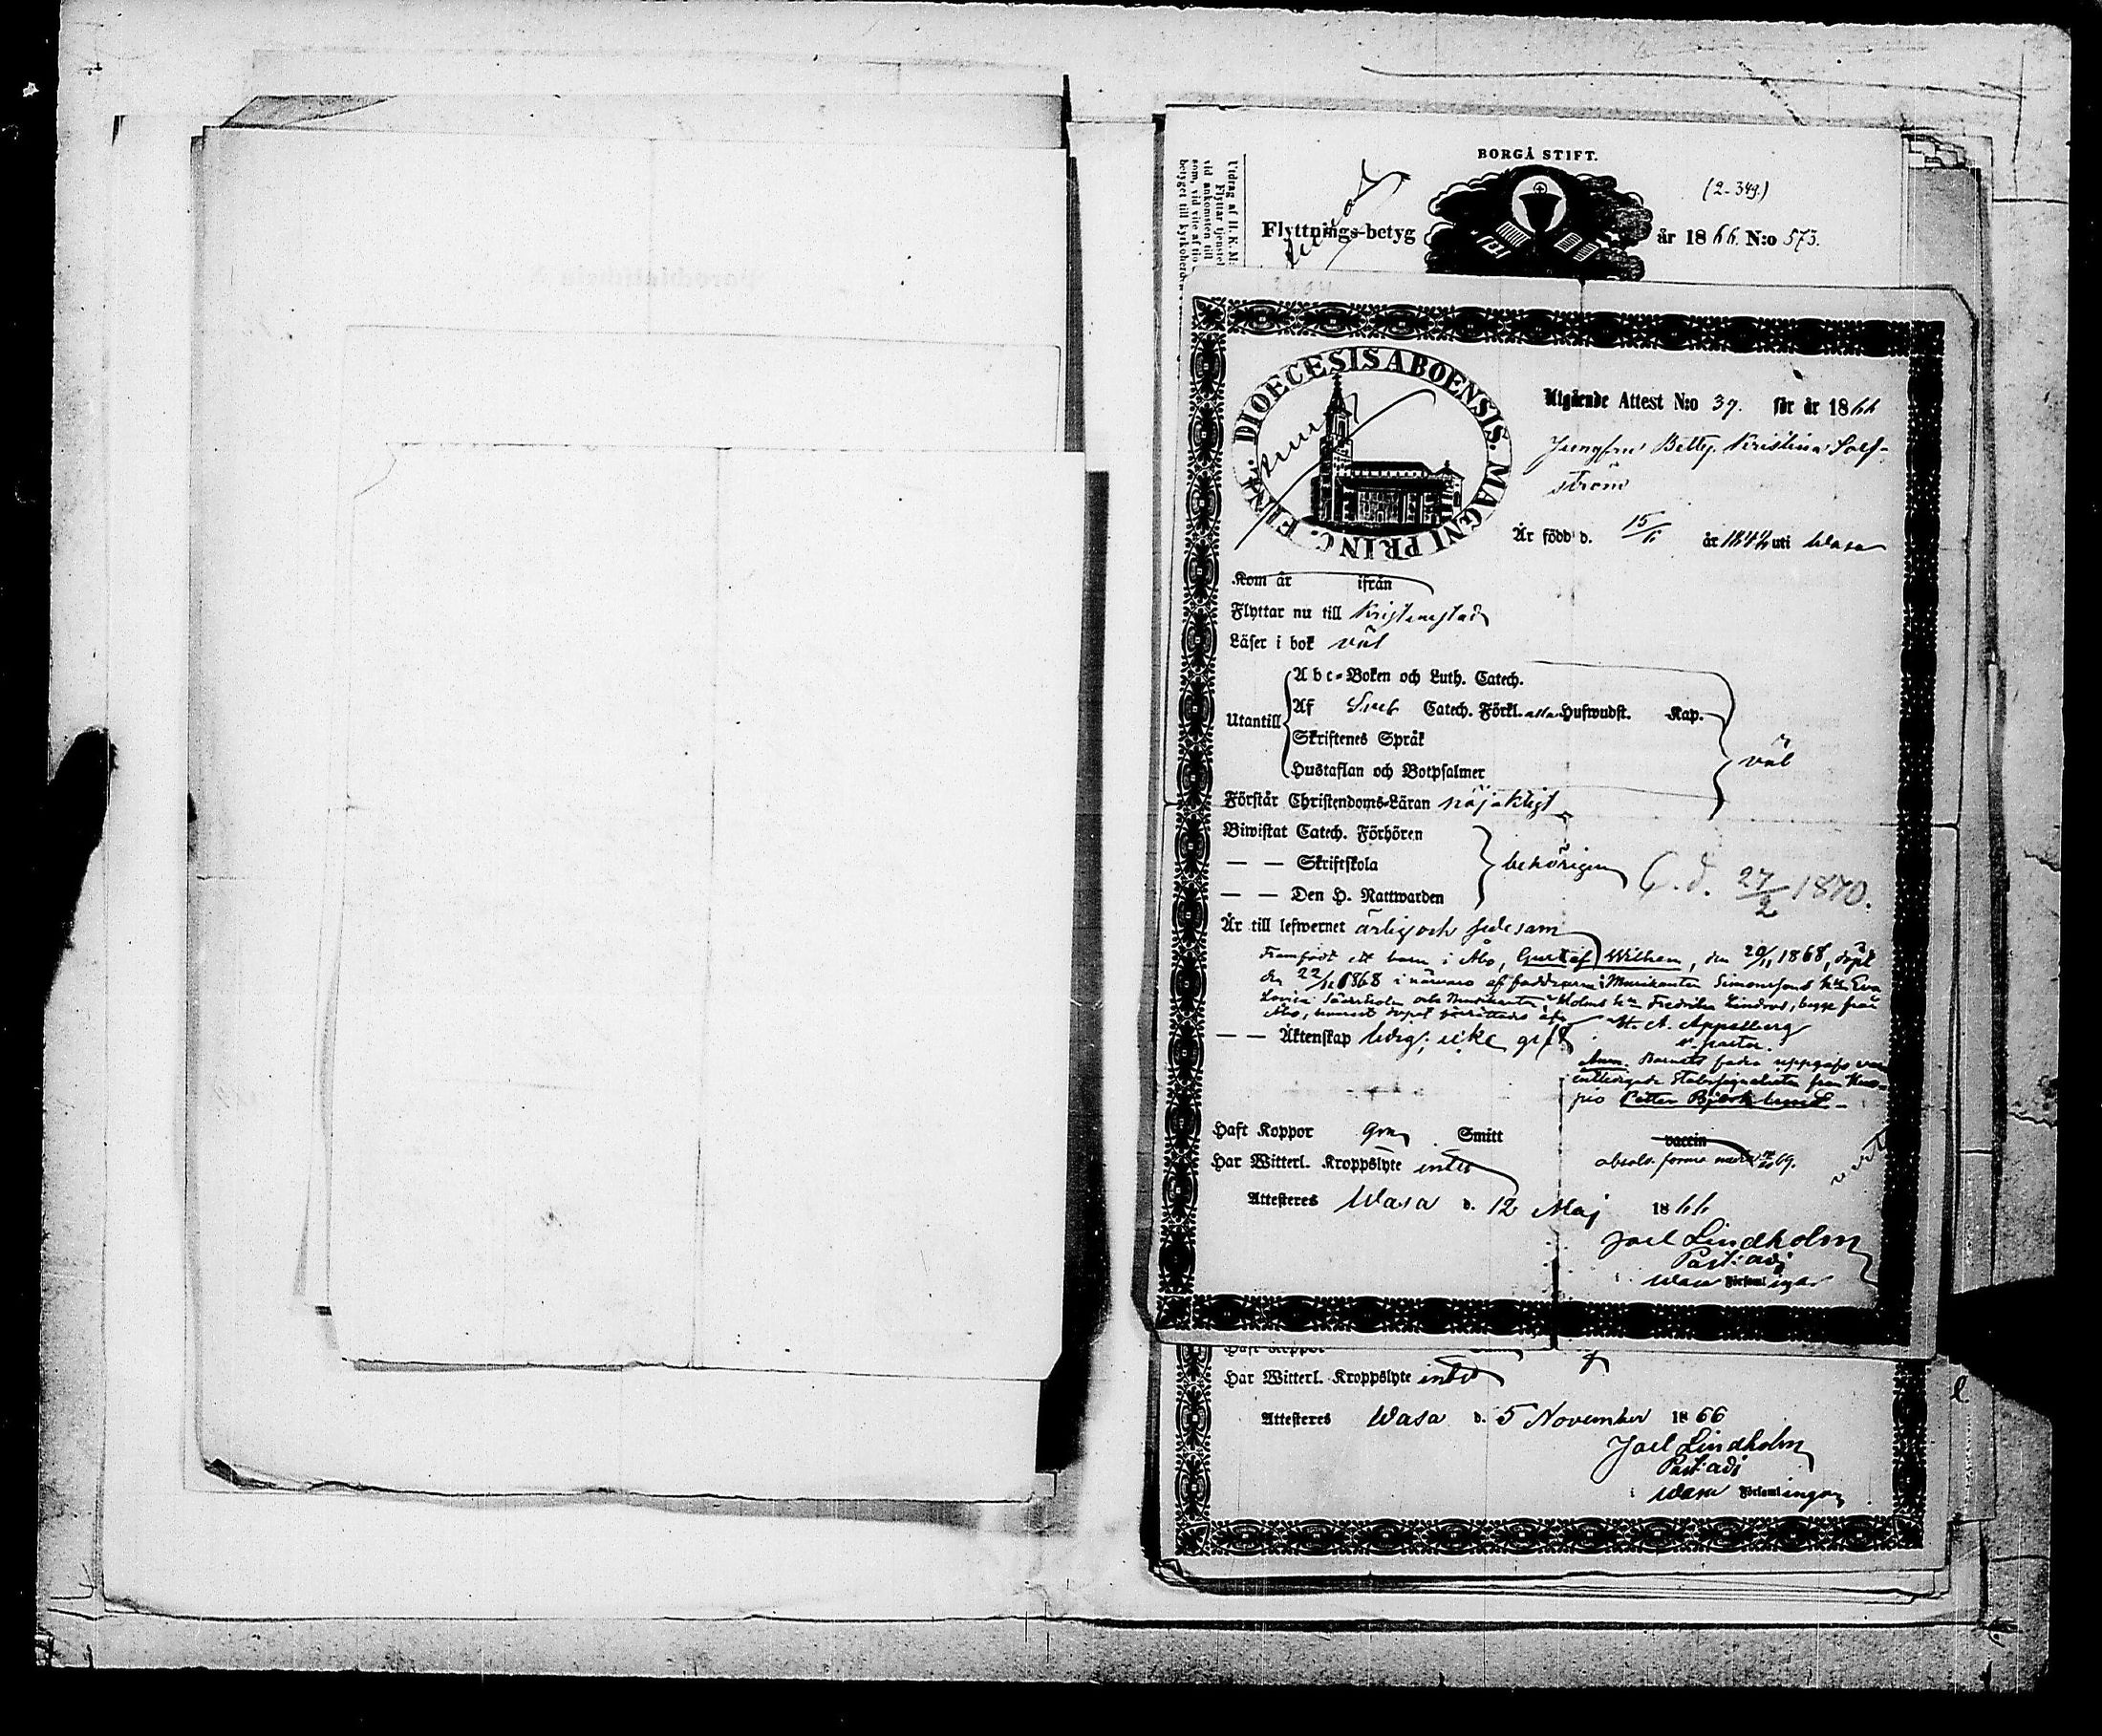 BORGÅ STIFT.
(2-349.)
Flyttnings-betyg
år 1866. N:o 573.
Utdrag af H. K. M:
Flyttar tjenstef
vid ankomsten till
som, vid vite af tio
betyget till kyrkoherd
DIOECESIS ABOENSIS. MAGNI PRINC. FINL.
Utgående Attest N:o 39. för år 1866
Jungfrun Betty Kristina Solf-
ström
Är född d. 15/ år 184 uti Wasa
Kom år ifrån
Flyttar nu till Kristinestad
Läser i bok väl
Abc-Boken och Luth. Catech.
Utantill Af Sveb Catech. Förkl. alla Hufwudst. Kap.
Skriftenes Språk
väl
Hustaflan och Botpsalmer
Förstår Christendoms-Läran nöjaktigt
Biwistat Catech. Förhören
— — Skriftskola behörigen
C. d. 27/2 1870.
— — Den H. Nattwarden
Är till lefwernet ärlig och sedesam
Framfödt ett barn i Åbo, Gustaf Wilhem, den 20/11 1868, döpt
den 22/11 1868 i närvaro af faddrarne: Musikanten Simonssons h:u Eva
Lovisa Söderholm och Musikanten Holms h:u Fredrika Lindros, begge från
Åbo, hvarest dopet förrättades af
H. A. Appelberg
v. pastor.
— — Äktenskap ledig; icke gift
Anm. Barnets fader uppgafs vara
entledigade Stabssignalisten från Kuo-
pio Petter Björklund.
Haft Koppor Smitt vaccin
Har Witterl. Kroppslyte intet
absolv. forma
Attesteres Wasa d. 12 Maj 1866
Joel Lindholm
Past: adj
Wasa Församlingar
Haft Koppor
Har Witterl. Kroppslyte intet
Attesteres Wasa d. 5 November 1866
Joel Lindholm
Past: adj
Wasa Församlingar